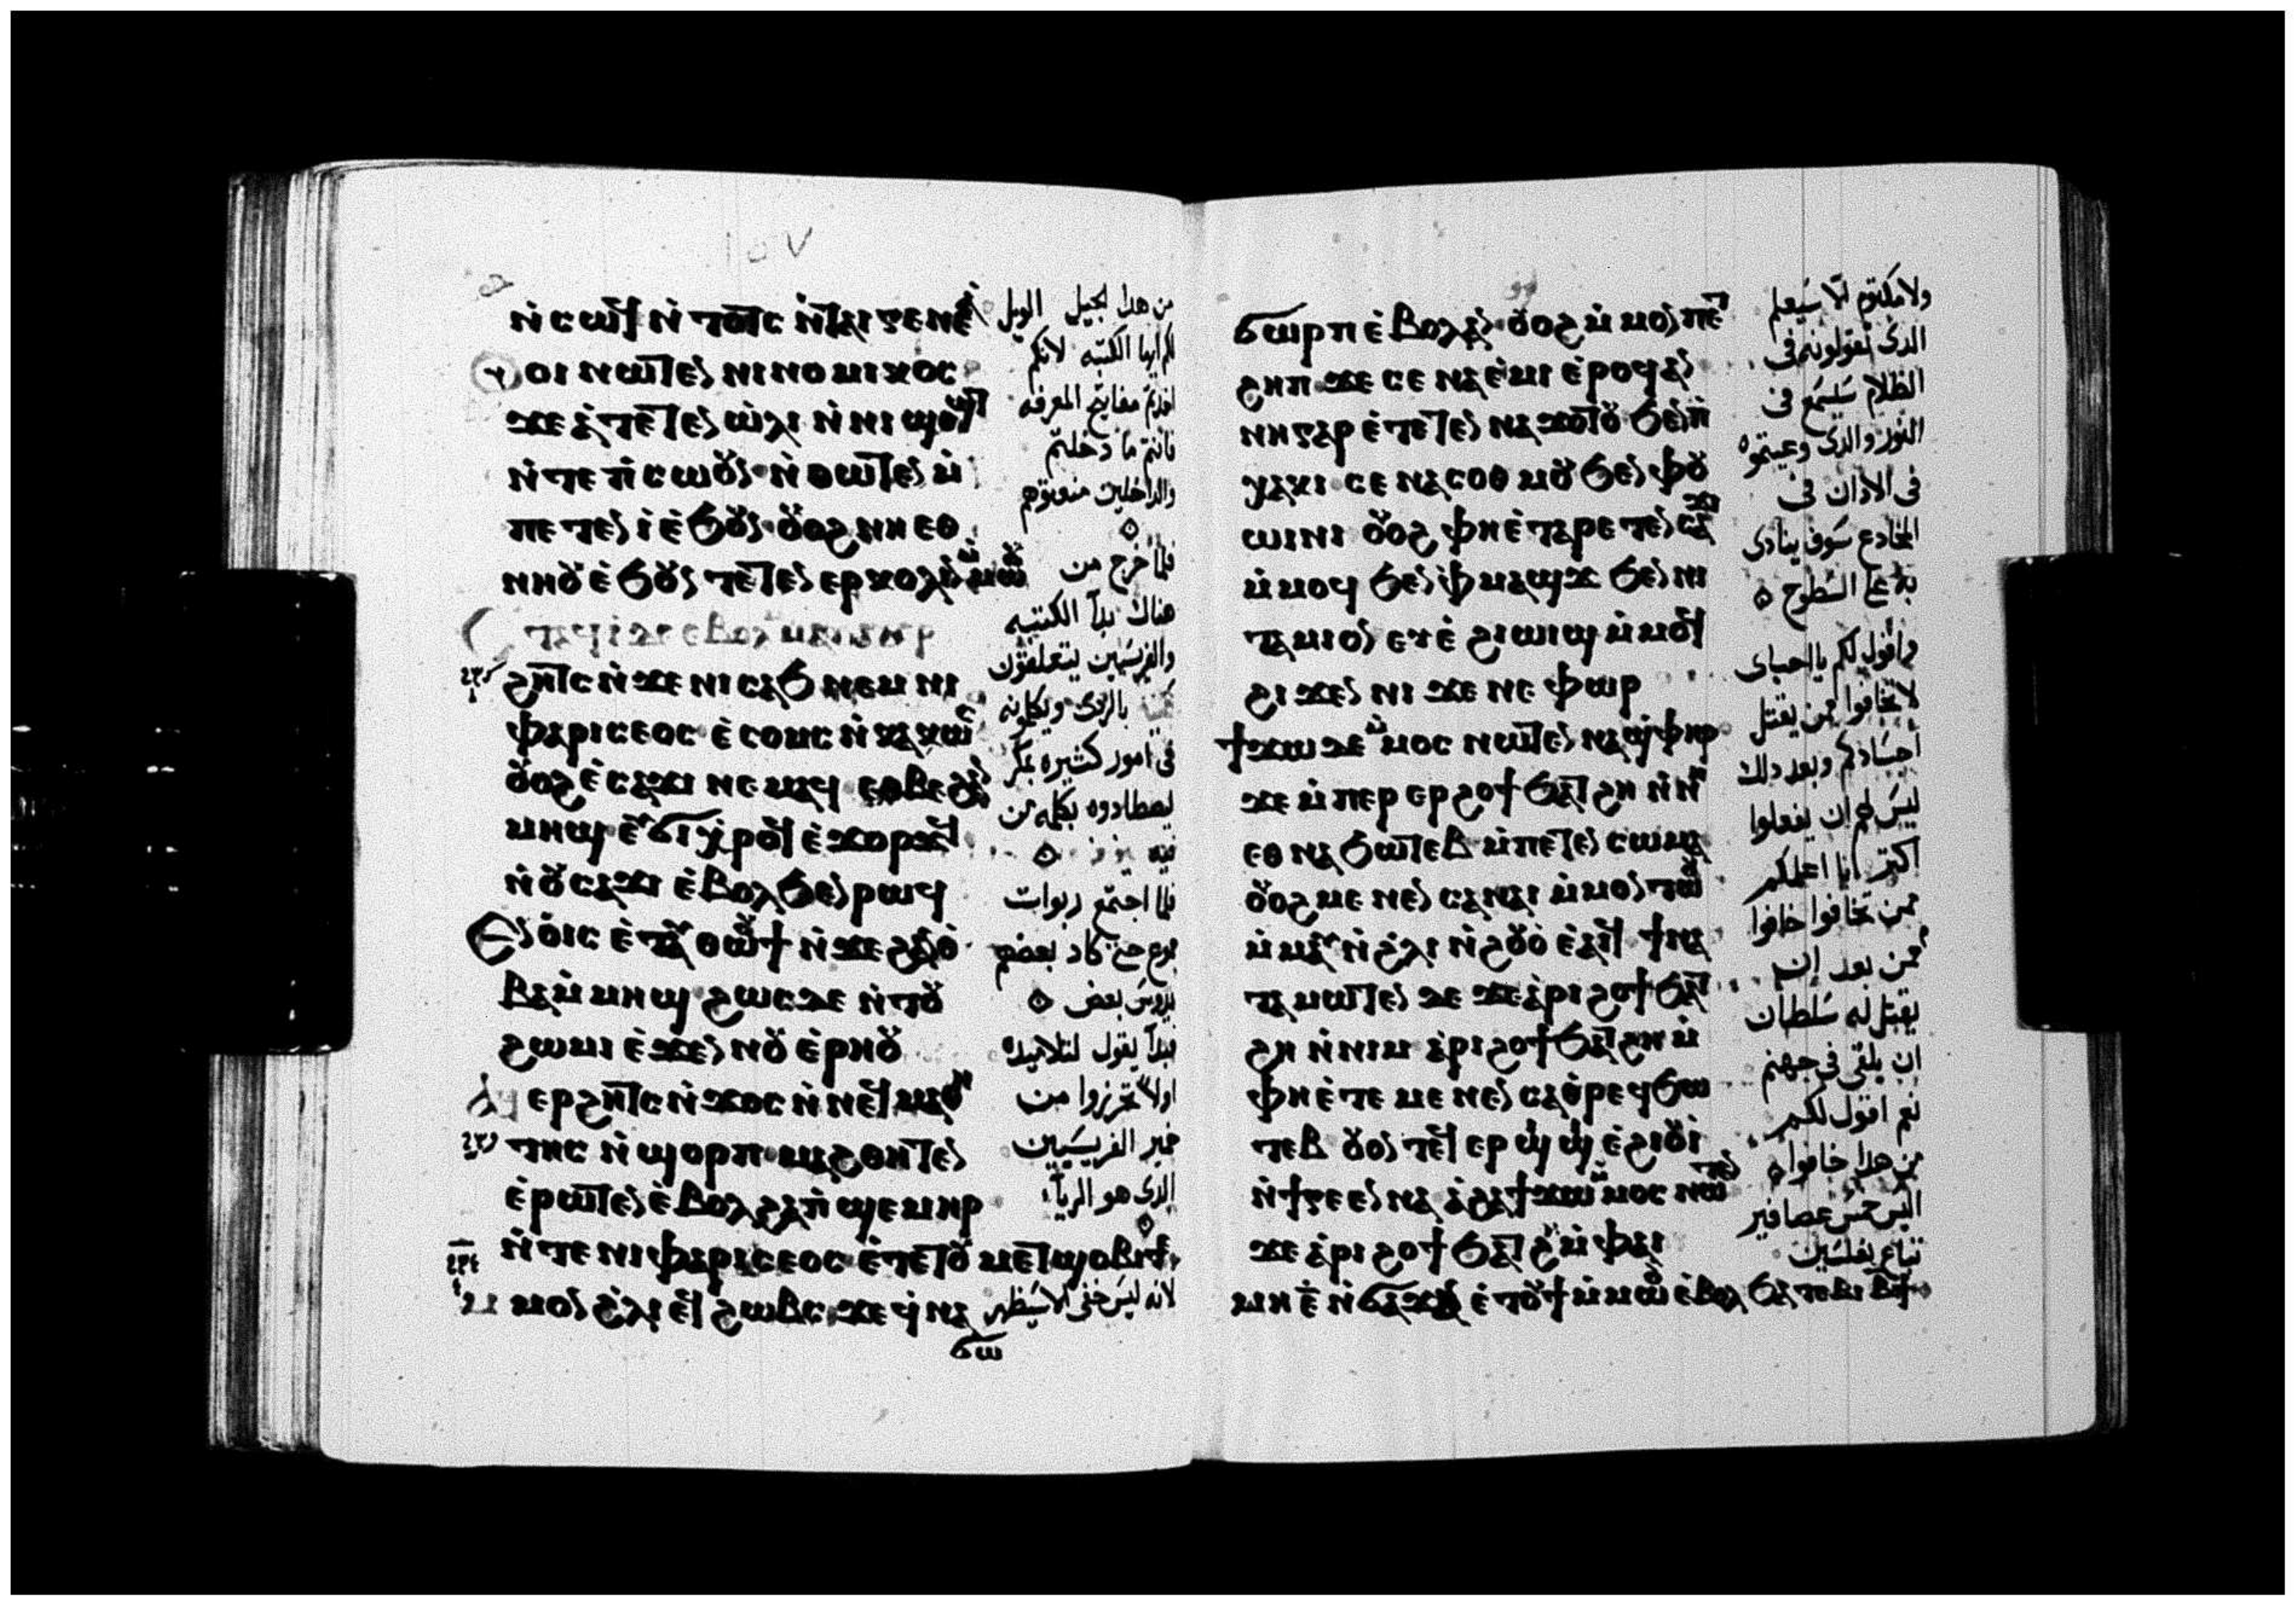 ⲛ̀ⲥⲱⲧϥ ⲛ̀ⲧⲟⲧⲥ ⲛ̀ⲧⲁⲓⲅⲉⲛⲉⲁ̀
ⲟⲩⲟⲓ ⲛⲱⲧⲉⲛ ⲛⲓⲛⲟⲙⲓⲕⲟⲥ
ϫⲉ ⲁ̀ⲧⲉⲧⲉⲛ ⲱ̀ⲗⲓ ⲛ̀ⲛⲓϣⲟϣⲧ
ⲛ̀ⲧⲉ ⲡ̀ⲥⲱⲟⲩⲛ ⲛ̀ⲑⲱⲧⲉⲛ ⲙ̀
ⲡⲉⲧⲉⲛ ⲓ̀ ⲉ̀ϧⲟⲩⲛ ⲟⲩⲟϩ ⲛⲏ ⲉⲑ
ⲛⲏⲟⲩ ⲉ̀ϧⲟⲩⲛ ⲧⲉⲧⲉⲛ ⲉⲣⲕⲱⲗⲓⲛ ⲙ̀ⲙⲱⲟⲩ
ⲉⲧⲁϥⲓ̀ ⲇⲉ ⲉⲃⲟⲗ ⲙⲙⲁⲩ ⲁⲩⲉⲣ
ϩⲏⲧⲥ ⲛ̀ϫⲉ ⲛⲓⲥⲁϧ ⲛⲉⲙ ⲛⲓ
ⲫⲁⲣⲓⲥⲉⲟⲥ ⲉ̀ⲥⲟⲙⲥ ⲛ̀ⲕⲁⲕⲱⲥ
ⲟⲩⲟϩ ⲉ̀ⲥⲁϫⲓ ⲛⲉⲙⲁϥ ⲉⲑⲃⲉ ϩⲁⲛ
ⲙⲏϣ ⲉⲩϭⲓⲭⲣⲟϥ ⲉ̀ϫⲟⲣϫϥ
ⲛ̀ⲟⲩⲥⲁϫⲓ ⲉ̀ⲃⲟⲗ ϧⲉⲛ ⲣⲱϥ
ⲉⲛ ⲟⲓⲥ ⲉ̀ⲧⲁⲩⲑⲱⲟⲩϯ ⲛ̀ϫⲉ ϩⲁⲛⲑ̀
ⲃⲁ ⲙ̀ⲙⲏϣ ϩⲱⲥⲇⲉ ⲛ̀ⲧⲟⲩ
ϩⲱⲙⲓ ⲉ̀ϫⲉⲛ ⲛⲟⲩⲉ̀ⲣⲏⲟⲩ
ⲁϥ ⲉⲣϩⲏⲧⲥ ⲛ̀ϫⲟⲥ ⲛ̀ⲛⲉϥⲙⲁⲑⲏ
ⲧⲏⲥ ⲛ̀ϣⲟⲣⲡ ⲙⲁϩⲑⲏⲧⲉⲛ
ⲉ̀ⲣⲱⲧⲉⲛ ⲉ̀ⲃⲟⲗ ϩⲁ ⲡ̀ϣⲉⲙⲏⲣ
ⲛ̀ⲧⲉ ⲛⲓⲫⲁⲣⲓⲥⲉⲟⲥ ⲉ̀ⲧⲉ ⲧⲟⲩⲙⲉⲧϣⲟⲃⲓ ⲧⲉ
ⲙ̀ⲙⲟⲛ ϩ̀ⲗⲓ ⲉϥϩⲱⲃⲥ ϫⲉ ϥ̀ⲛⲁ
ϭⲱ
من هدا الجيل الويل
لكم ايها الكتبه لانكم
اخدتم مفاتيح المعرفه
فانتم ما دخلتم
والداخلين منعتوهم
فلما خرج من
هناك بدآ الكتبه
والفريسيين يتعلقون
بالردى ويكلمونه
فى امور كثيره بمكر
ليصطادوه بكلمه من
فيه
فلما اجتمع ربوات
جموع حتى كاد بعضهم
يدوس بعض
فبدآ يقول لتلاميده
اولا تحرزوا من
خمير الفريسيين
الدى هو الريآ
لانه ليس خفى الا سيظهر
ϭⲱⲣⲡ ⲉ̀ⲃⲟⲗ ⲁⲛ ⲟⲩⲟϩ ⲙ̀ⲙⲟⲛ ⲡⲉⲧ
ϩⲏⲡ ϫⲉ ⲥⲉⲛⲁⲉ̀ⲙⲓ ⲉ̀ⲣⲟϥ ⲁⲛ
ⲛⲏ ⲅⲁⲣ ⲉ̀ⲧⲉⲧⲉⲛ ⲛⲁϫⲟⲧⲟⲩ ϧⲉⲛ ⲡ̀
ⲭⲁⲕⲓ ⲥⲉⲛⲁⲥⲟⲑⲙⲟⲩ ϧⲉⲛ ⲫⲟⲩ
ⲱⲓⲛⲓ ⲟⲩⲟϩ ⲫⲏ ⲉ̀ⲧⲁⲣⲉⲧⲉⲛ ⲥⲁϫⲓ
ⲙ̀ⲙⲟϥ ϧⲉⲛ ⲫ̀ⲙⲁϣϫ ϧⲉⲛ ⲛⲓ
ⲧⲁⲙⲓⲟⲛ ⲉⲩⲉ̀ϩⲓⲱⲓϣ ⲙ̀ⲙⲟϥ
ϩⲓϫⲉⲛ ⲛⲓϫⲉⲛⲉⲫⲱⲣ
ϯϫⲱ ⲇⲉ ⲙ̀ⲙⲟⲥ ⲛⲱⲧⲉⲛ ⲛⲁϣ̀ⲫⲏⲣ
ϫⲉ ⲙ̀ⲡⲉⲣ ⲉⲣϩⲟϯ ϧⲁⲧϩⲏ ⲛ̀ⲛⲏ
ⲉⲑⲛⲁϧⲱⲧⲉⲃ ⲙ̀ⲡⲉⲧⲉⲛ ⲥⲱⲙⲁ
ⲟⲩⲟϩ ⲙⲉⲛⲉⲛⲥⲁ ⲛⲁⲓ ⲙ̀ⲙⲟⲛ ⲧⲱⲟⲩ
ⲙ̀ⲙⲁⲩ ⲛ̀ϩ̀ⲗⲓ ⲛ̀ϩⲟⲩⲟ̀ ⲉ̀ⲁⲓϥ ϯⲛⲁ
ⲧⲁⲙⲱⲧⲉⲛ ⲇⲉ ϫⲉ ⲁ̀ⲣⲓϩⲟϯ ϧⲁⲧ
ϩⲏ ⲛ̀ⲛⲓⲙ ⲁⲣⲓϩⲟϯ ϧⲁⲧϩⲏ ⲙ̀
ⲫⲏ ⲉ̀ⲧⲉ ⲙⲉⲛⲉⲛⲥⲁ ⲑⲣⲉϥϧⲱ
ⲧⲉⲃ ⲟⲩⲟⲛⲧⲉϥ ⲉⲣϣⲓϣⲓ ⲉ̀ϩⲓⲟⲩⲓ̀
ⲛ̀ϯⲅⲉⲉⲛⲛⲁ ⲁ̀ϩⲁ ϯϫⲱ ⲙ̀ⲙⲟⲥ ⲛⲱⲧⲉⲛ
ϫⲉ ⲁ̀ⲣⲓϩⲟϯ ϧⲁⲧϩⲏ ⲙ̀ⲫⲁⲓ
ⲙⲏ ⲉ̄ ⲛ̀ϭⲁϫ ⲉ̀ⲧⲟⲩϯ ⲙ̀ⲙⲱⲟⲩ ⲉ̀ⲃⲟⲗ ϧⲁ ⲧⲉⲃⲓ ⲃϯ
ولا مكتوم الا سيعلم
الدى تقولونه فى
الظلام سيسمع فى
النور والدى وعيتموه
فى الادان فى
المخادع سوف ينادى
به على السطوح
واقول لكم يا احباى
لا تخافوا ممن يقتل
اجسادكم وبعد دلك
ليس لهم ان يفعلوا
اكتر انا اعلمكم
ممن تخافوا خافوا
ممن بعد ان
يقتل له سلطان
ان يلقى فى جهنم
نعم اقول لكم
من هدا خافوا
اليس خمس عصافير
تباع بفلسين